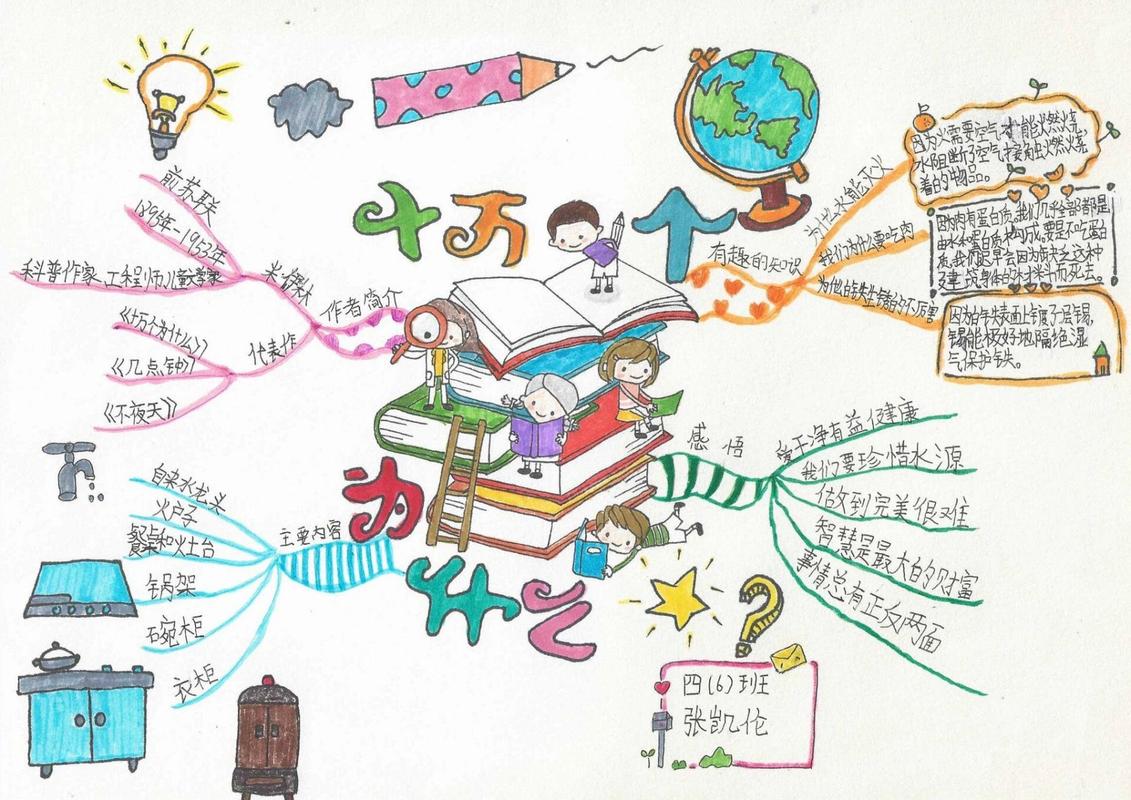 十万个
为什么
作者简介
米·伊林
前苏联
1895年-1953年
科普作家、工程师、儿童文学家
代表作
《十万个为什么》
《几点钟》
《不夜天》
有趣的知识
为什么水能灭火
因为火需要空气才能燃烧,
水阻断了空气接触燃烧
着的物品。
我们为什么要吃肉
因为肉有蛋白质,我们几乎全部都是
由水和蛋白质构成。要是不吃蛋白
质,我们迟早会因为缺乏这种
建筑身体的材料而死去。
铁生锈的不厉害
因为白铁表面上镀了一层锡,
锡能极好地隔绝湿
气,保护铁。
主要内容
自来水龙头
火炉子
餐桌和灶台
锅架
碗柜
衣柜
感悟
爱干净有益健康
我们要珍惜水源
做到完美很难
智慧是最大的财富
事情总有正反两面
四(6)班
张凯伦